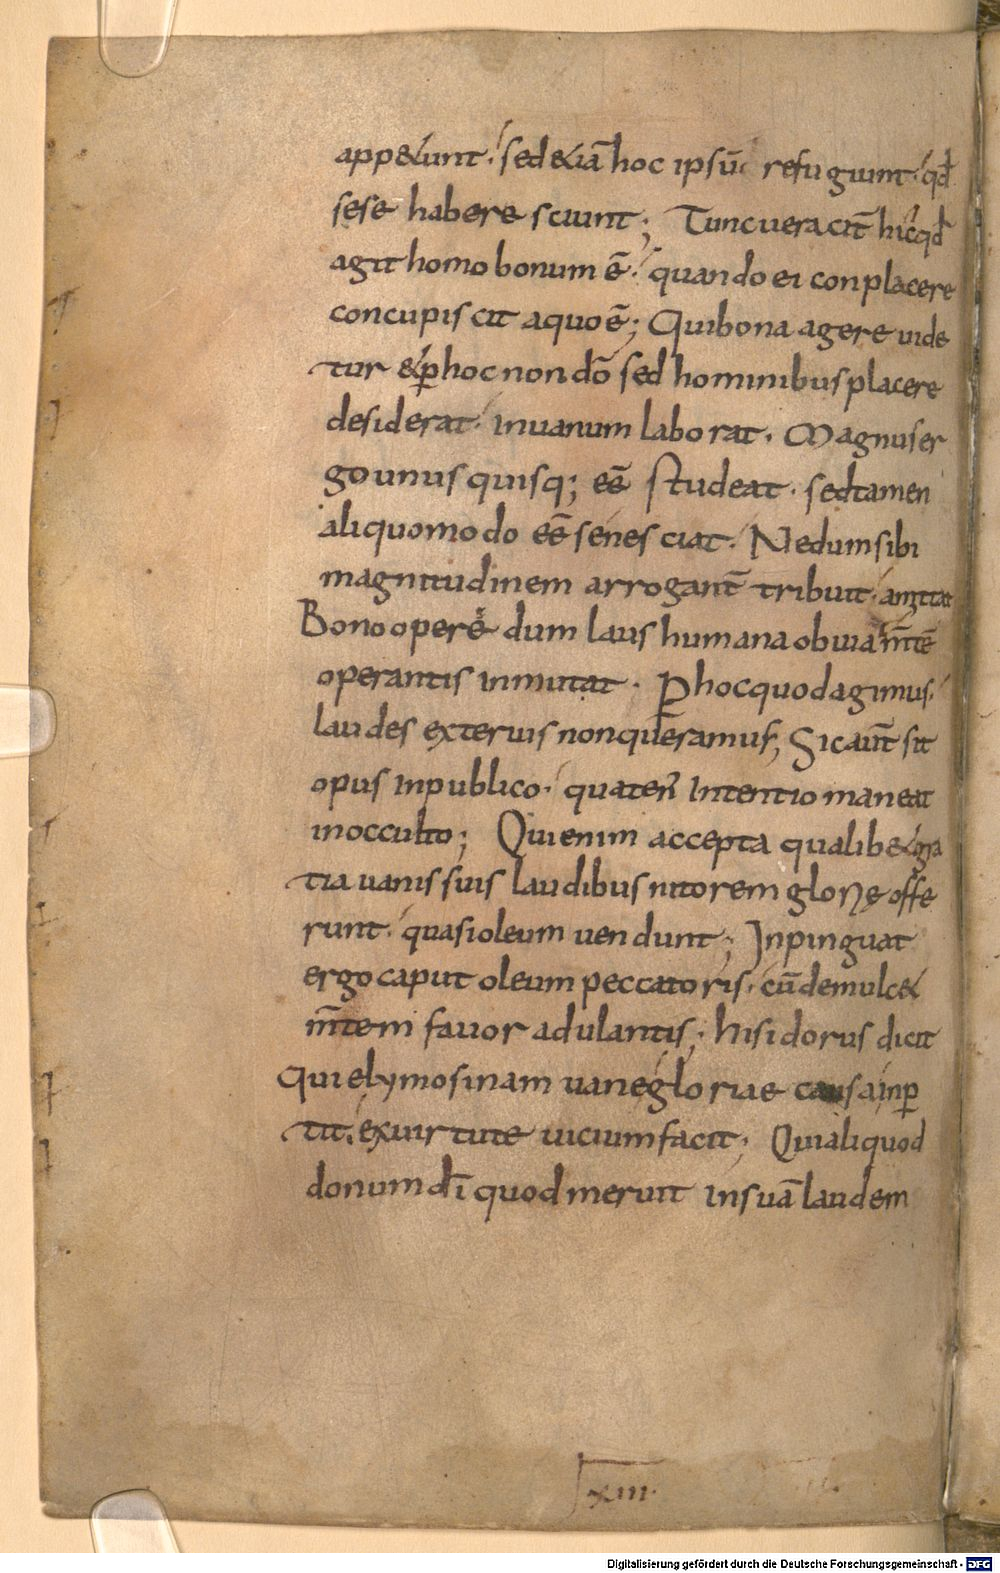 app&unt · sed &iā hoc ipsū · refugiunt · qđ
sese habere sciunt ; Tunc uera cit̄ hic qđ
agit homo bonum ē · quando ei conplacere
concupiscit a quo ē ; Qui bona agere uide
tur & ꝑ hoc non dō sed hominibus placere
desiderat · in uanum laborat · Magnus er
go unus quisq; eē studeat · sed tamen
aliquo modo eē se nesciat · Ne dum sibi
magnitudinem arrogant̄ tribuit · amittat
Bono operē dum laus humana obuia m̄tē
operantis inmutat · P̱ hoc quod agimus ·
laudes exterius non queramus ; Sic aut̄ sit
opus in publico · quaten̄ intentio maneat
in occulto ; Qui enim accepta qualib& gra
tia uanis suis laudibus nitorem glorię offe
runt · quasi oleum uendunt ; Inpinguat
ergo caput oleum peccatoris · cū demulc&
m̄tem fauor adulantis ; hisidorus dicit
Qui elymosinam uane gloriae causa inꝑ
tit · ex uirtute uicium facit ; Qui aliquod
donum dī quod meruit in suā laudem
xiii·
Digitalisierung gefördert durch die Deutsche Forschungsgemeinschaft - DFG